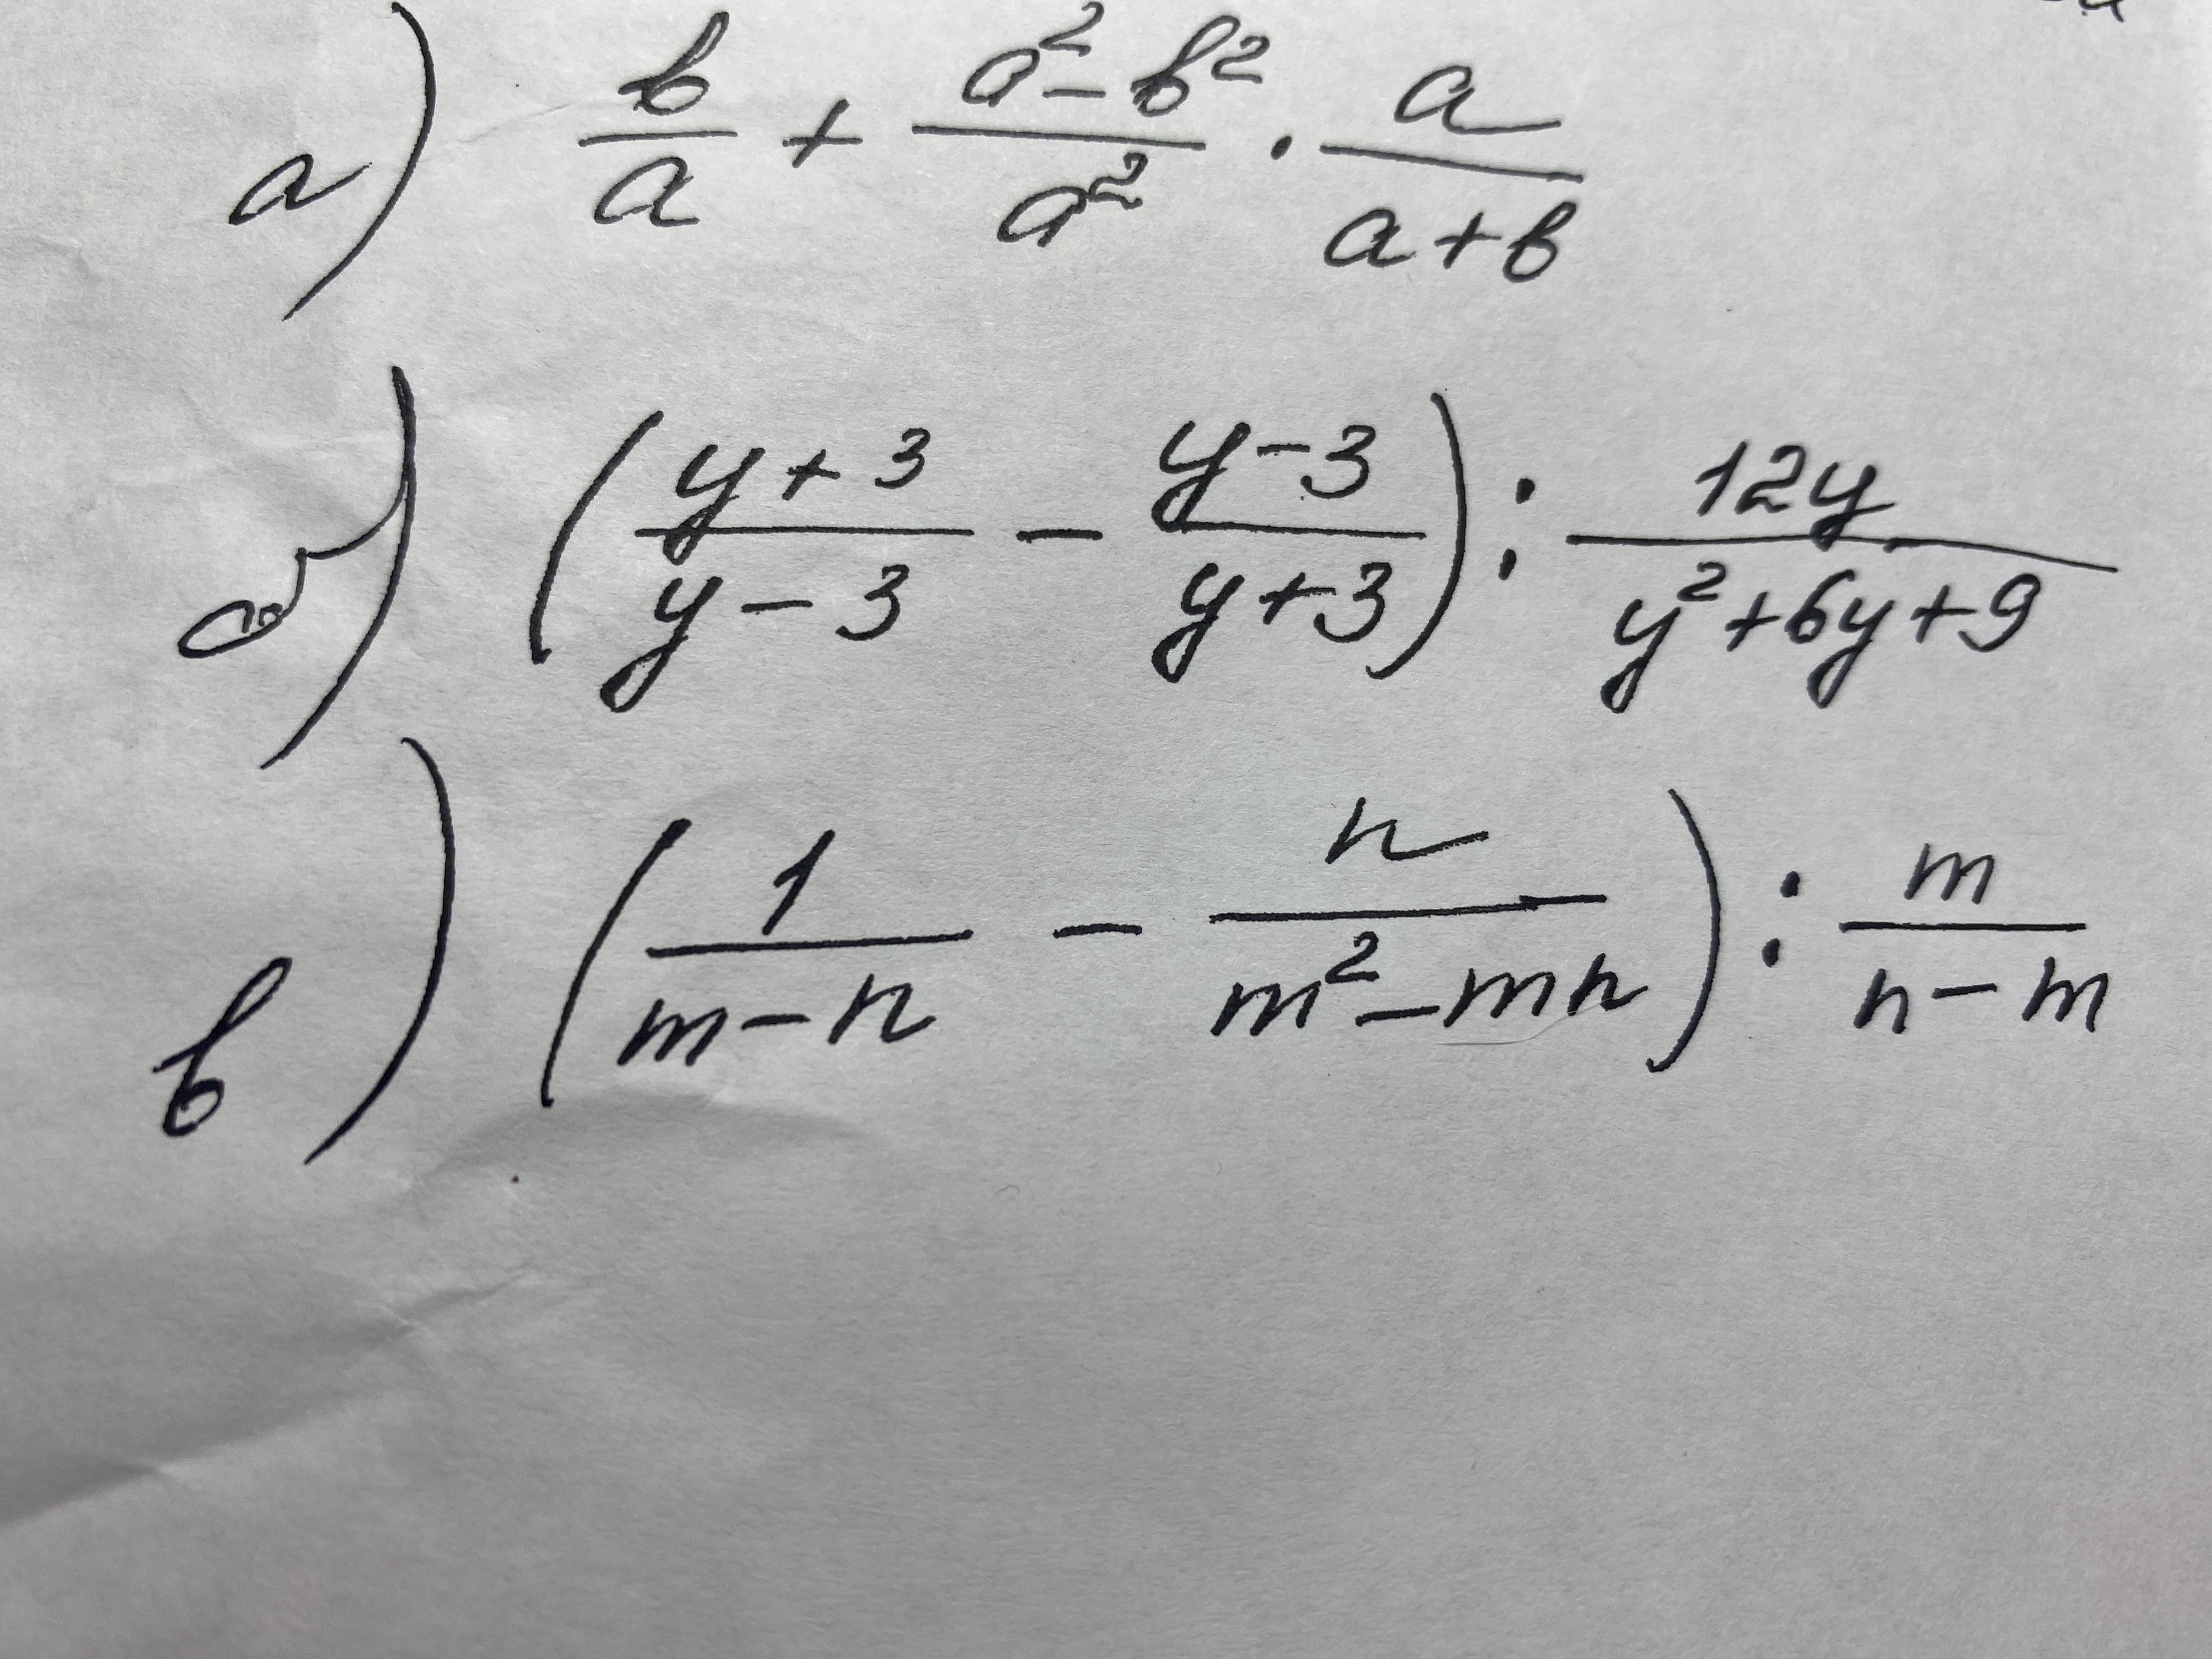 а) b/a + (a² - b²)/a² · a/(a + b)
б) ((y + 3)/(y - 3) - (y - 3)/(y + 3)) : 12y/(y² + 6y + 9)
в) (1/(m - n) - n/(m² - mn)) : m/(n - m)